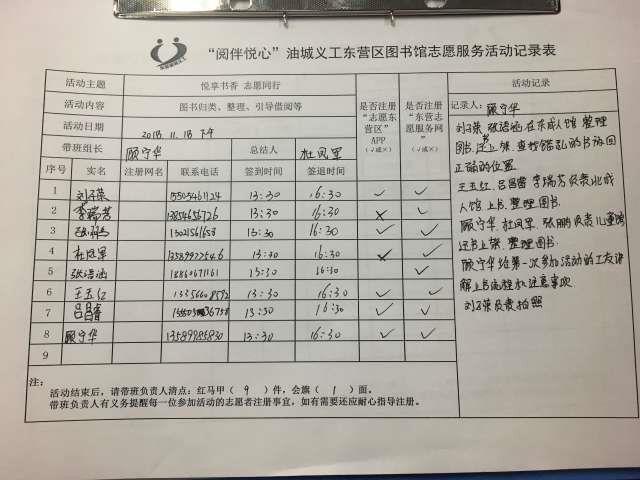 “阅伴悦心”油城义工东营区图书馆志愿服务活动记录表
活动主题 悦享书香 志愿同行 是否注册“志愿东营区”APP（√或×） 是否注册“东营志愿服务网”（√或×） 活动记录
活动内容 图书归类、整理、引导借阅等
活动日期 2018.11.18 下午
带班组长 顾守华 总结人 杜凤军
序号 实名 注册网名 联系电话 签到时间 签退时间
1 刘子荣 15505461124 13:30 16:30 √ √
2 李瑞芳 13854656726 13:30 16:30 × √
3 13021561658 13:30 16:30 √ √
4 杜凤军 13589932546 13:30 16:30 × √
5 张洁涵 18860671161 13:30 16:30 √
6 王玉红 13356608592 13:30 16:30 √ √
7 吕昌睿 13:30 16:30 √ √
8 顾守华 13589985830 13:30 16:30 √ √
9
记录人：顾守华
刘子荣 张洁涵在东成人馆整理
图书,还上架.查找错乱的书放回
正确的位置.
王玉红、吕昌睿 李瑞芳负责北成
人馆上书.整理图书.
顾守华.杜凤军.张鹏负责儿童馆
还书上架.整理图书.
顾守华给第一次参加活动的工友讲
解上书流程和注意事项.
刘子荣负责拍照
注：
活动结束后，请带班负责人清点：红马甲（ 9 ）件，会旗（ 1 ）面。
带班负责人有义务提醒每一位参加活动的志愿者注册事宜，如有需要还应耐心指导注册。